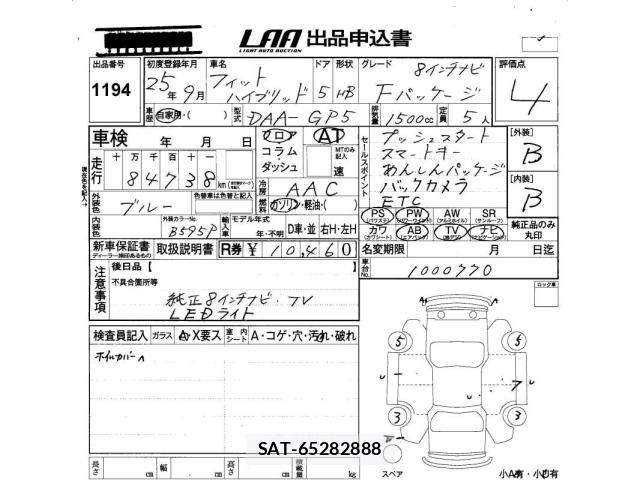 LAA 出品申込書
LIGHT AUTO AUCTION
出品番号 1194
初度登録年月 25年 9月
車名 フィット ハイブリッド
ドア 5
形状 HB
グレード 8インチナビ Fパッケージ
評価点 4
車歴 自家用・( )
型式 DAA-GP5
排気量 1500cc
定員 5人
車検 年 月 日
フロア コラム・ダッシュ
AT
MTのみ記入 速
セールスポイント
プッシュスタート
スマートキー
あんしんパッケージ
バックカメラ
ETC
[外装] B
[内装] B
走行 十万千百十一
84738km
冷房 AAC
燃料 ガソリン・軽油・( )
外装色 ブルー
色替車は色替と記入
内装色
外装カラーNo. B595P
輸入車 モデル年式 年・不明
D車・並 右H・左H
PS PW AW SR
(パワステ) (パワーウインド) (アルミホイル) (サンルーフ)
カワ AB TV ナビ
純正品のみ丸印
新車保証書 取扱説明書 R券 ¥ 10,460
名変期限 月 日迄
車台No. 1000770
ロック車
注意事項
後日品【 】
不具合箇所等
純正8インチナビ・TV
LEDライト
検査員記入 ガラス A・X要ス 室内シート A・コゲ・穴・汚れ・破れ
ホイルカバーA
5 5
7
3 3
SAT-65282888
長さ cm 幅 cm 高さ cm 積載量 kg
スペア
小A有・小U有